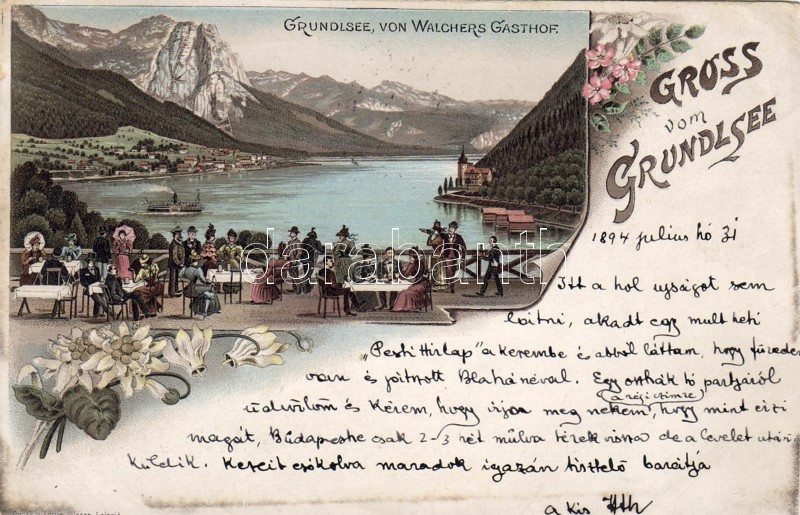 GRUNDLSEE, VON WALCHERS GASTHOF.
GROSS
vom
GRUNDLSEE
darabanth
1894 július hó 31
Itt a hol ujságot sem
látni, akadt egy mult heti
„Pesti Hirlap" a kezembe és abból láttam, hogy
van és játszott Blahánéval. Egy osztrák tó partjáról
üdvözlöm és kérem, hogy írja meg nekem, (a régi czimre) hogy mint érzi
magát, Budapestre csak 2-3 hét mulva térek vissza de a levelet utána
küldik. Kezeit csókolva maradok igazán tisztelő barátja
a kis